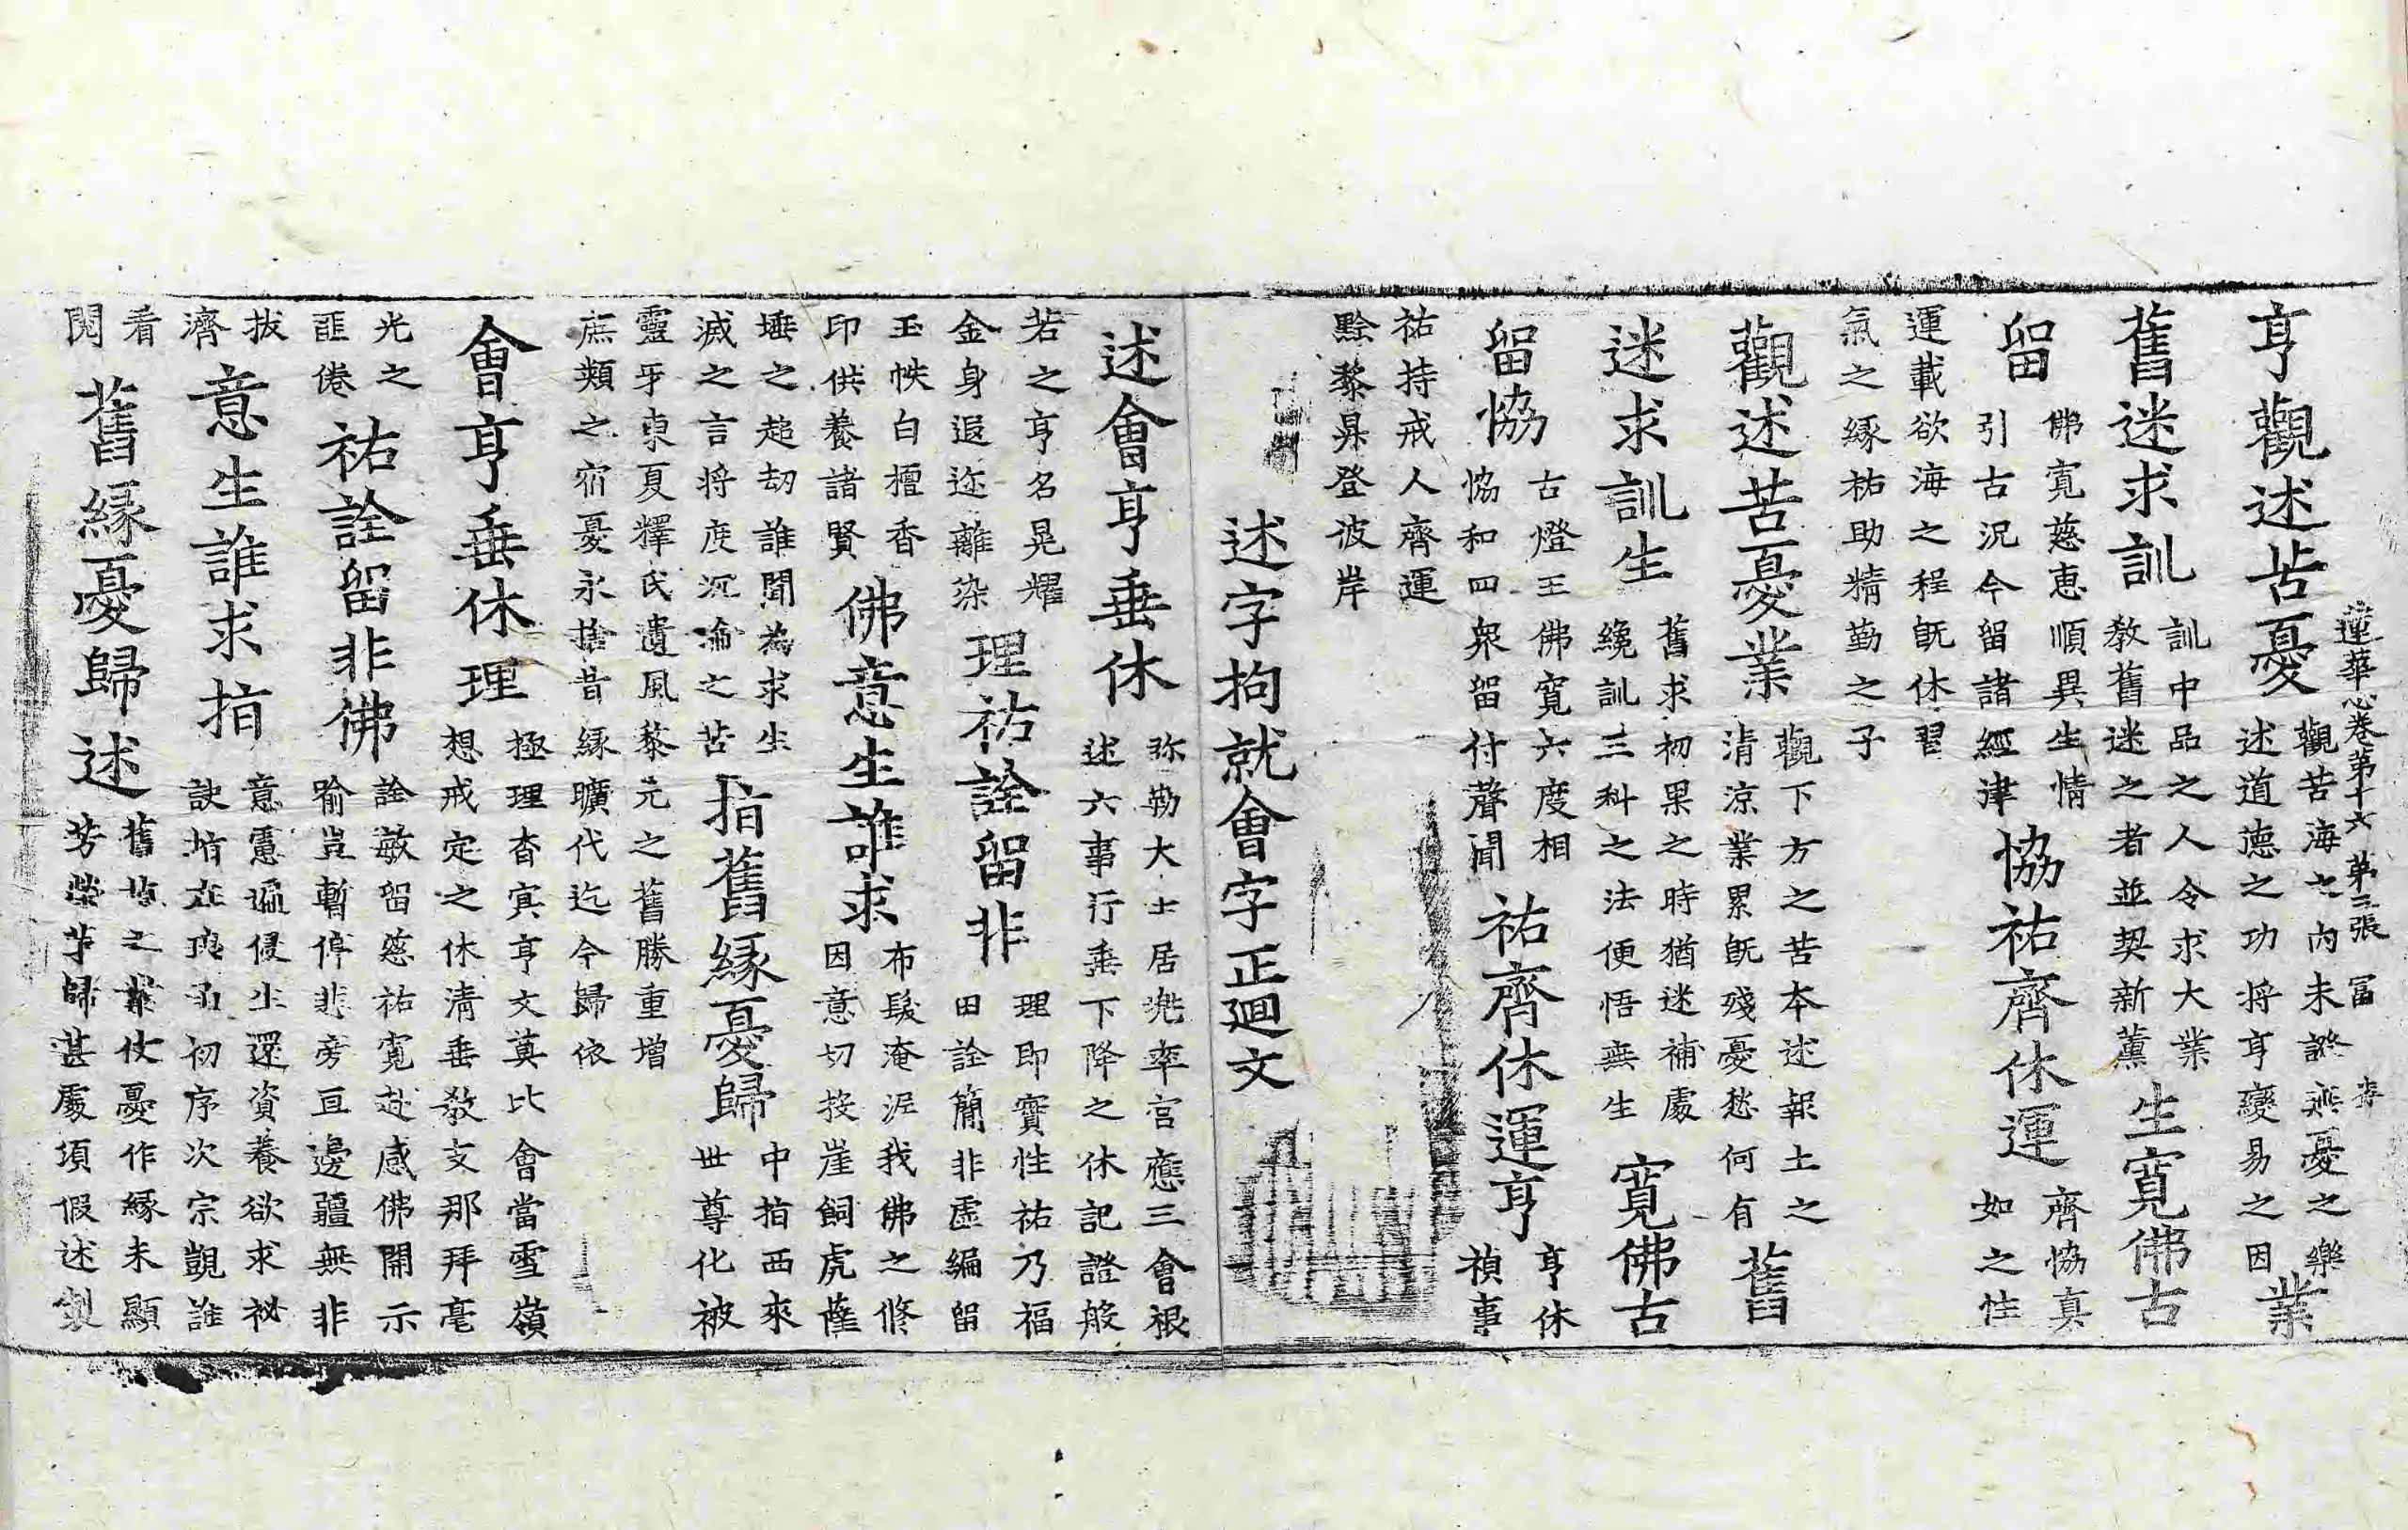 蓮華心卷第十六 第三張 冨
亨觀述苦憂觀苦海之內未證無憂之樂述道德之功將亨變易之因業
舊迷求訓訓中品之人令求大業教舊迷之者並契新薰生寬佛古
留佛寬慈惠順異生情引古況今留諸經津協祐齊休運齊協真如之性
運載欲海之程旣休習氣之緣祐助精勤之子
觀述苦憂業觀下方之苦本述報土之清凉業累旣殘憂愁何有舊
迷求訓生舊求初果之時猶迷補處纔訓三科之法便悟無生寬佛古
留協古燈王佛寬六度相協和四衆留付聲聞祐齊休運亨亨休禎事
祐持戒人齊運黔黎昇登彼岸
述字拘就會字正廻文
述會亨垂休弥勒大士居兠率宫應三會根述六事行垂下降之休記證般
若之亨名晃耀金身遐迩離染理祐詮留非理即實性祐乃福田詮簡非虛編留
玉帙白檀香印供養諸賢佛意生誰求布髮淹泥我佛之修因意切投崖飼虎薩
埵之超劫誰聞為求生滅之言将度沉淪之苦指舊緣憂歸中指西來世尊化被
靈牙東夏釋氏遺風黎元之舊勝重增庶類之宿憂永捨昔緣曠代迄今歸依
會亨垂休理極理杳冥亨文莫比會當雪嶺想戒定之休清垂教支那拜毫
光之匪倦祐詮留非佛詮敏留慈祐寬赴感佛開示喻豈暫停悲旁亘邊疆無非
拔濟意生誰求指意憲逼侵生還資養欲求祕訣指在初序次宗覬誰
看閱舊緣憂歸述舊之業仗憂作緣未顯芳榮歸甚處項假述製